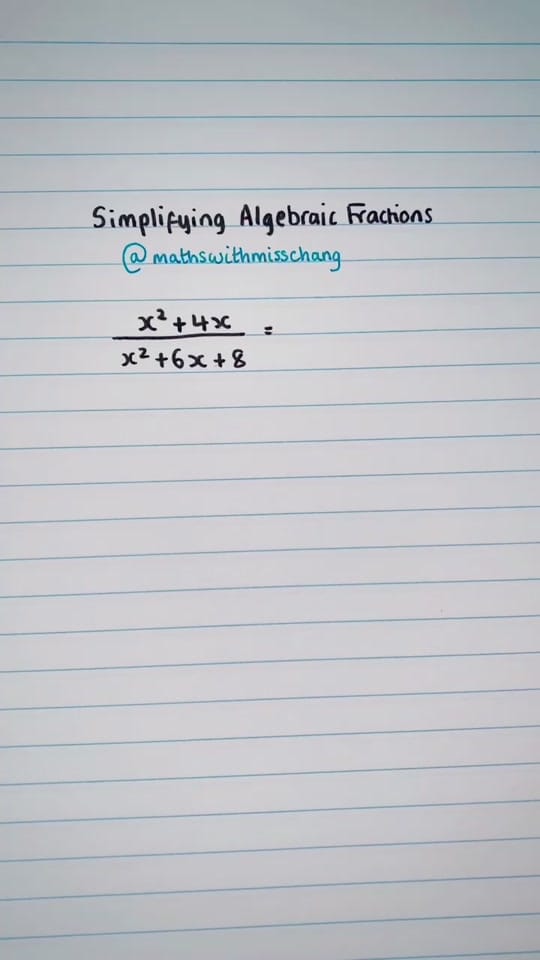 Simplifying Algebraic Fractions
@mathswithmisschang
x² + 4x
=
x² + 6x + 8